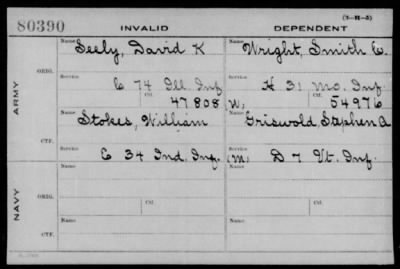 80390 INVALID DEPENDENT (3-H-5)
Name Seely, David K Name Wright, Smith E.
ARMY
ORIG.
Service C 74 Ill Inf Service H 31 Mo. Inf
Ctf. 47808 W, Ctf. 54976
Name Stokes, William Name Griswold, Stephen A
CTF.
Service E 34 Ind. Inf. Service (M, D 7 Vt. Inf.
NAVY
ORIG.
Name Name
Service Ctf. Service Ctf.
CTF.
Name Name
Service Service